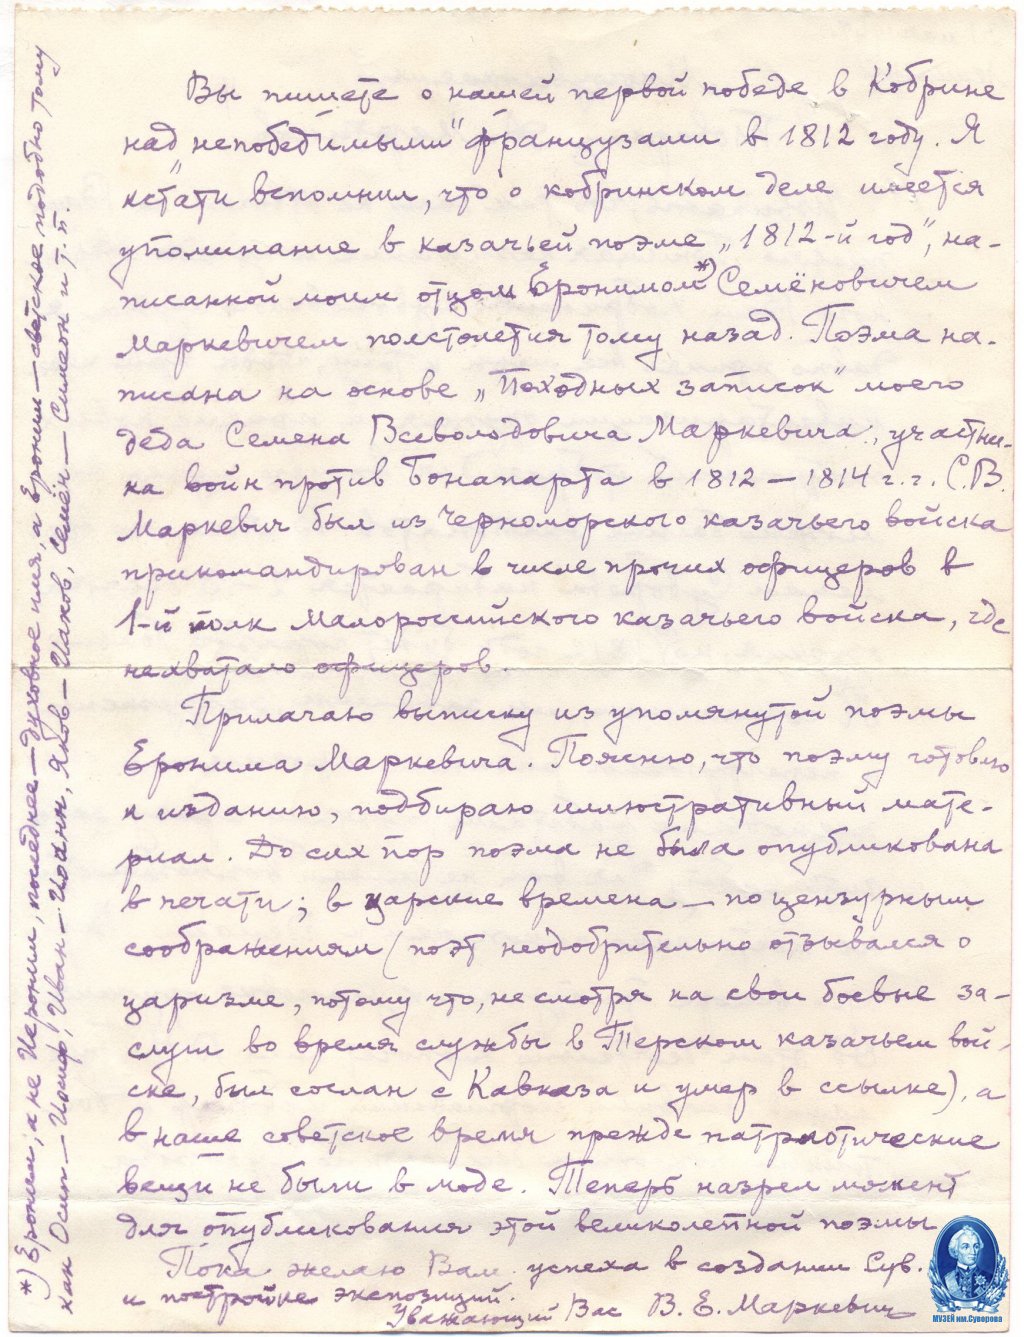 Вы пишете о нашей первой победе в Кобрине
над "непобедимыми" французами в 1812 году. Я
кстати вспомнил, что о кобринском деле имеется
упоминание в казачьей поэме „1812-й год", на-
писанной моим отцом Еронимом*) Семёновичем
Маркевичем полстолетия тому назад. Поэма на-
писана на основе „Походных записок" моего
деда Семена Всеволодовича Маркевича, участни-
ка войн против Бонапарта в 1812 — 1814 г.г. С.В.
Маркевич был из Черноморского казачьего войска
прикомандирован в числе прочих офицеров в
1-й полк Малороссийского казачьего войска, где
нехватало офицеров.
Прилагаю выписку из упомянутой поэмы
Еронима Маркевича. Поясню, что поэму готовлю
к изданию, подбираю иллюстративный мате-
риал. До сих пор поэма не была опубликована
в печати; в царские времена — по цензурным
соображениям (поэт неодобрительно отзывался о
царизме, потому что, несмотря на свои боевые за-
слуги во время службы в Терском казачьем вой-
ске, был сослан с Кавказа и умер в ссылке), а
в наше советское время прежде патриотические
вещи не были в моде. Теперь назрел момент
для опубликования этой великолепной поэмы
Пока желаю Вам успеха в создании Сув.
и постройке экспозиций.
Уважающий Вас В. Е. Маркевич
*) Ероним, а не Иероним, последнее — духовное имя, а Ероним — светское подобно тому
как Осип — Иосиф, Иван — Иоанн, Яков — Иаков, Семён — Симеон и т. п.
МУЗЕЙ им.Суворова